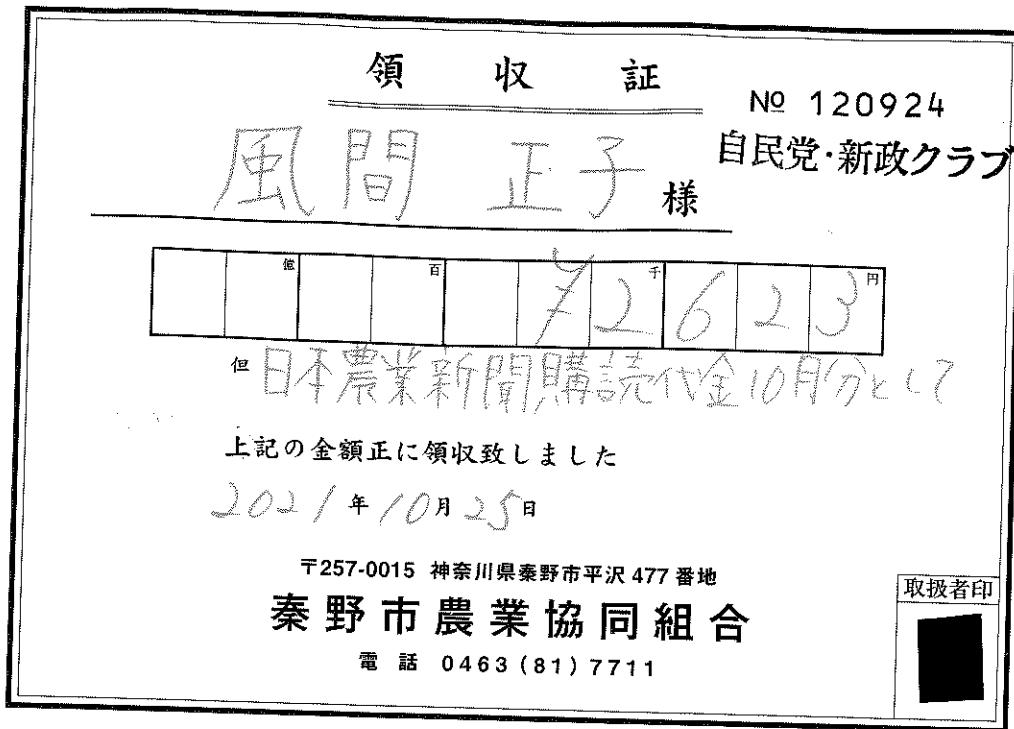 領収証
№ 120924
自民党・新政クラブ
風間 正子 様
億 百 千 円
¥2623
但 日本農業新聞購読代金10月分として
上記の金額正に領収致しました
2021年10月25日
〒257-0015 神奈川県秦野市平沢477番地
秦野市農業協同組合
電話 0463(81)7711
取扱者印